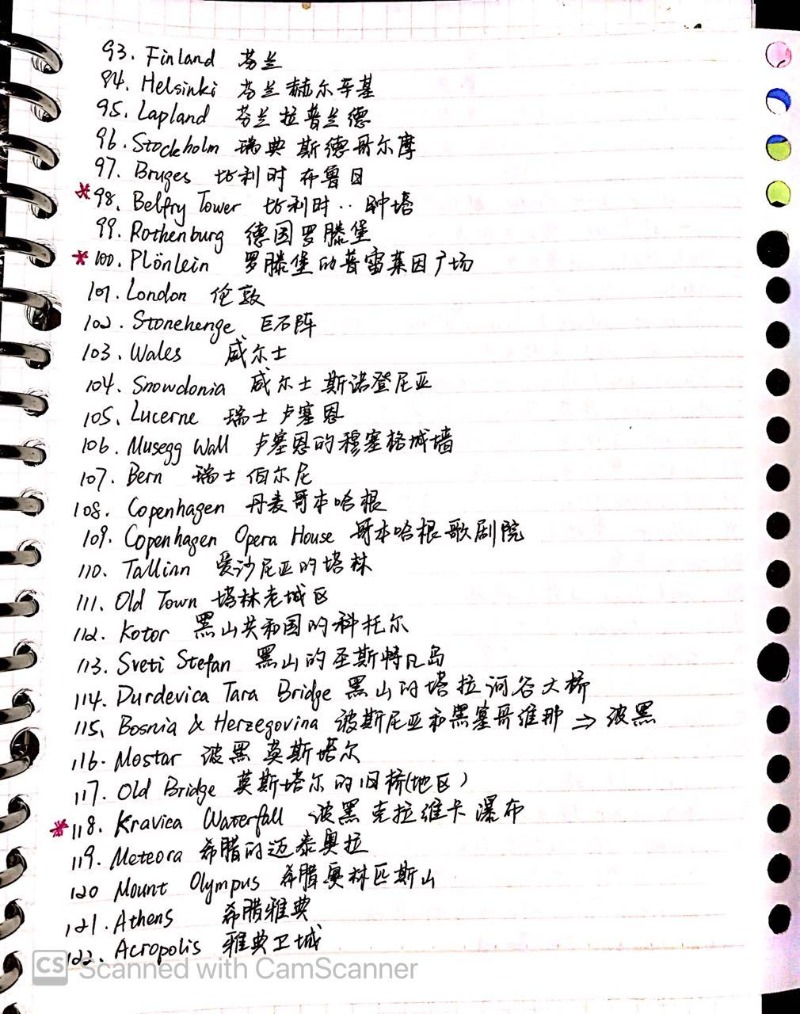 93. Finland 芬兰
94. Helsinki 芬兰赫尔辛基
95. Lapland 芬兰拉普兰德
96. Stockholm 瑞典斯德哥尔摩
97. Bruges 比利时布鲁日
*98. Belfry Tower 比利时‥钟塔
99. Rothenburg 德国罗滕堡
*100. Plönlein 罗滕堡的普雷莱因广场
101. London 伦敦
102. Stonehenge 巨石阵
103. Wales 威尔士
104. Snowdonia 威尔士斯诺登尼亚
105. Lucerne 瑞士卢塞恩
106. Musegg Wall 卢塞恩的穆塞格城墙
107. Bern 瑞士伯尔尼
108. Copenhagen 丹麦哥本哈根
109. Copenhagen Opera House 哥本哈根歌剧院
110. Tallinn 爱沙尼亚的塔林
111. Old Town 塔林老城区
112. Kotor 黑山共和国的科托尔
113. Sveti Stefan 黑山的圣斯特凡岛
114. Durdevica Tara Bridge 黑山的塔拉河谷大桥
115. Bosnia & Herzegovina 波斯尼亚和黑塞哥维那 ⇒ 波黑
116. Mostar 波黑莫斯塔尔
117. Old Bridge 莫斯塔尔的旧桥(地区)
*118. Kravica Waterfall 波黑克拉维卡瀑布
119. Meteora 希腊的迈泰奥拉
120 Mount Olympus 希腊奥林匹斯山
121. Athens 希腊雅典
122. Acropolis 雅典卫城
CS Scanned with CamScanner